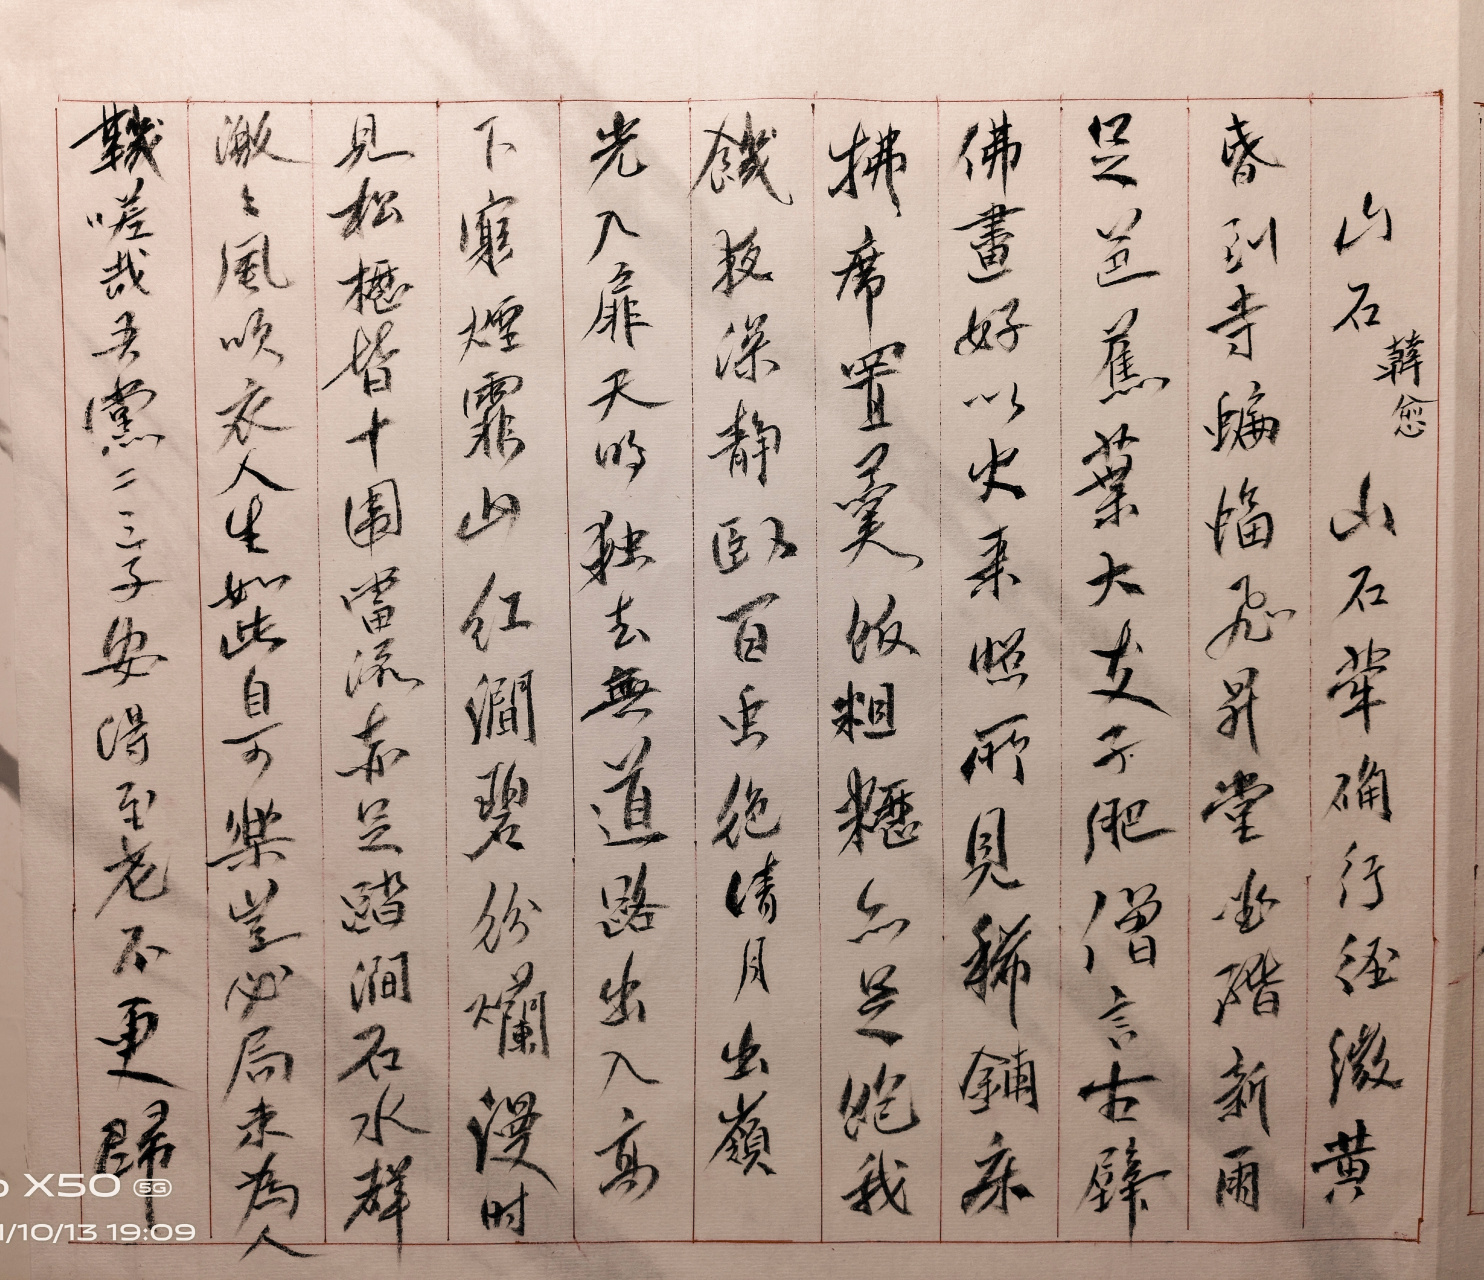 山石 韓愈 山石犖确行径微黄
昏到寺蝙蝠飛昇堂坐階新雨
足芭蕉葉大支子肥僧言古壁
佛畫好以火来照所見稀鋪床
拂席置羹飯粗糲亦足飽我
饑夜深静臥百虫絶清月出嶺
光入扉天明独去無道路出入高
下窮煙霏山红澗碧紛爛漫时
見松櫪皆十围當流赤足踏澗石水群
激〻風吹衣人生如此自可樂豈必局束為人
鞿嗟哉吾黨二三子安得至老不更歸
X50 5G
1/10/13 19:09